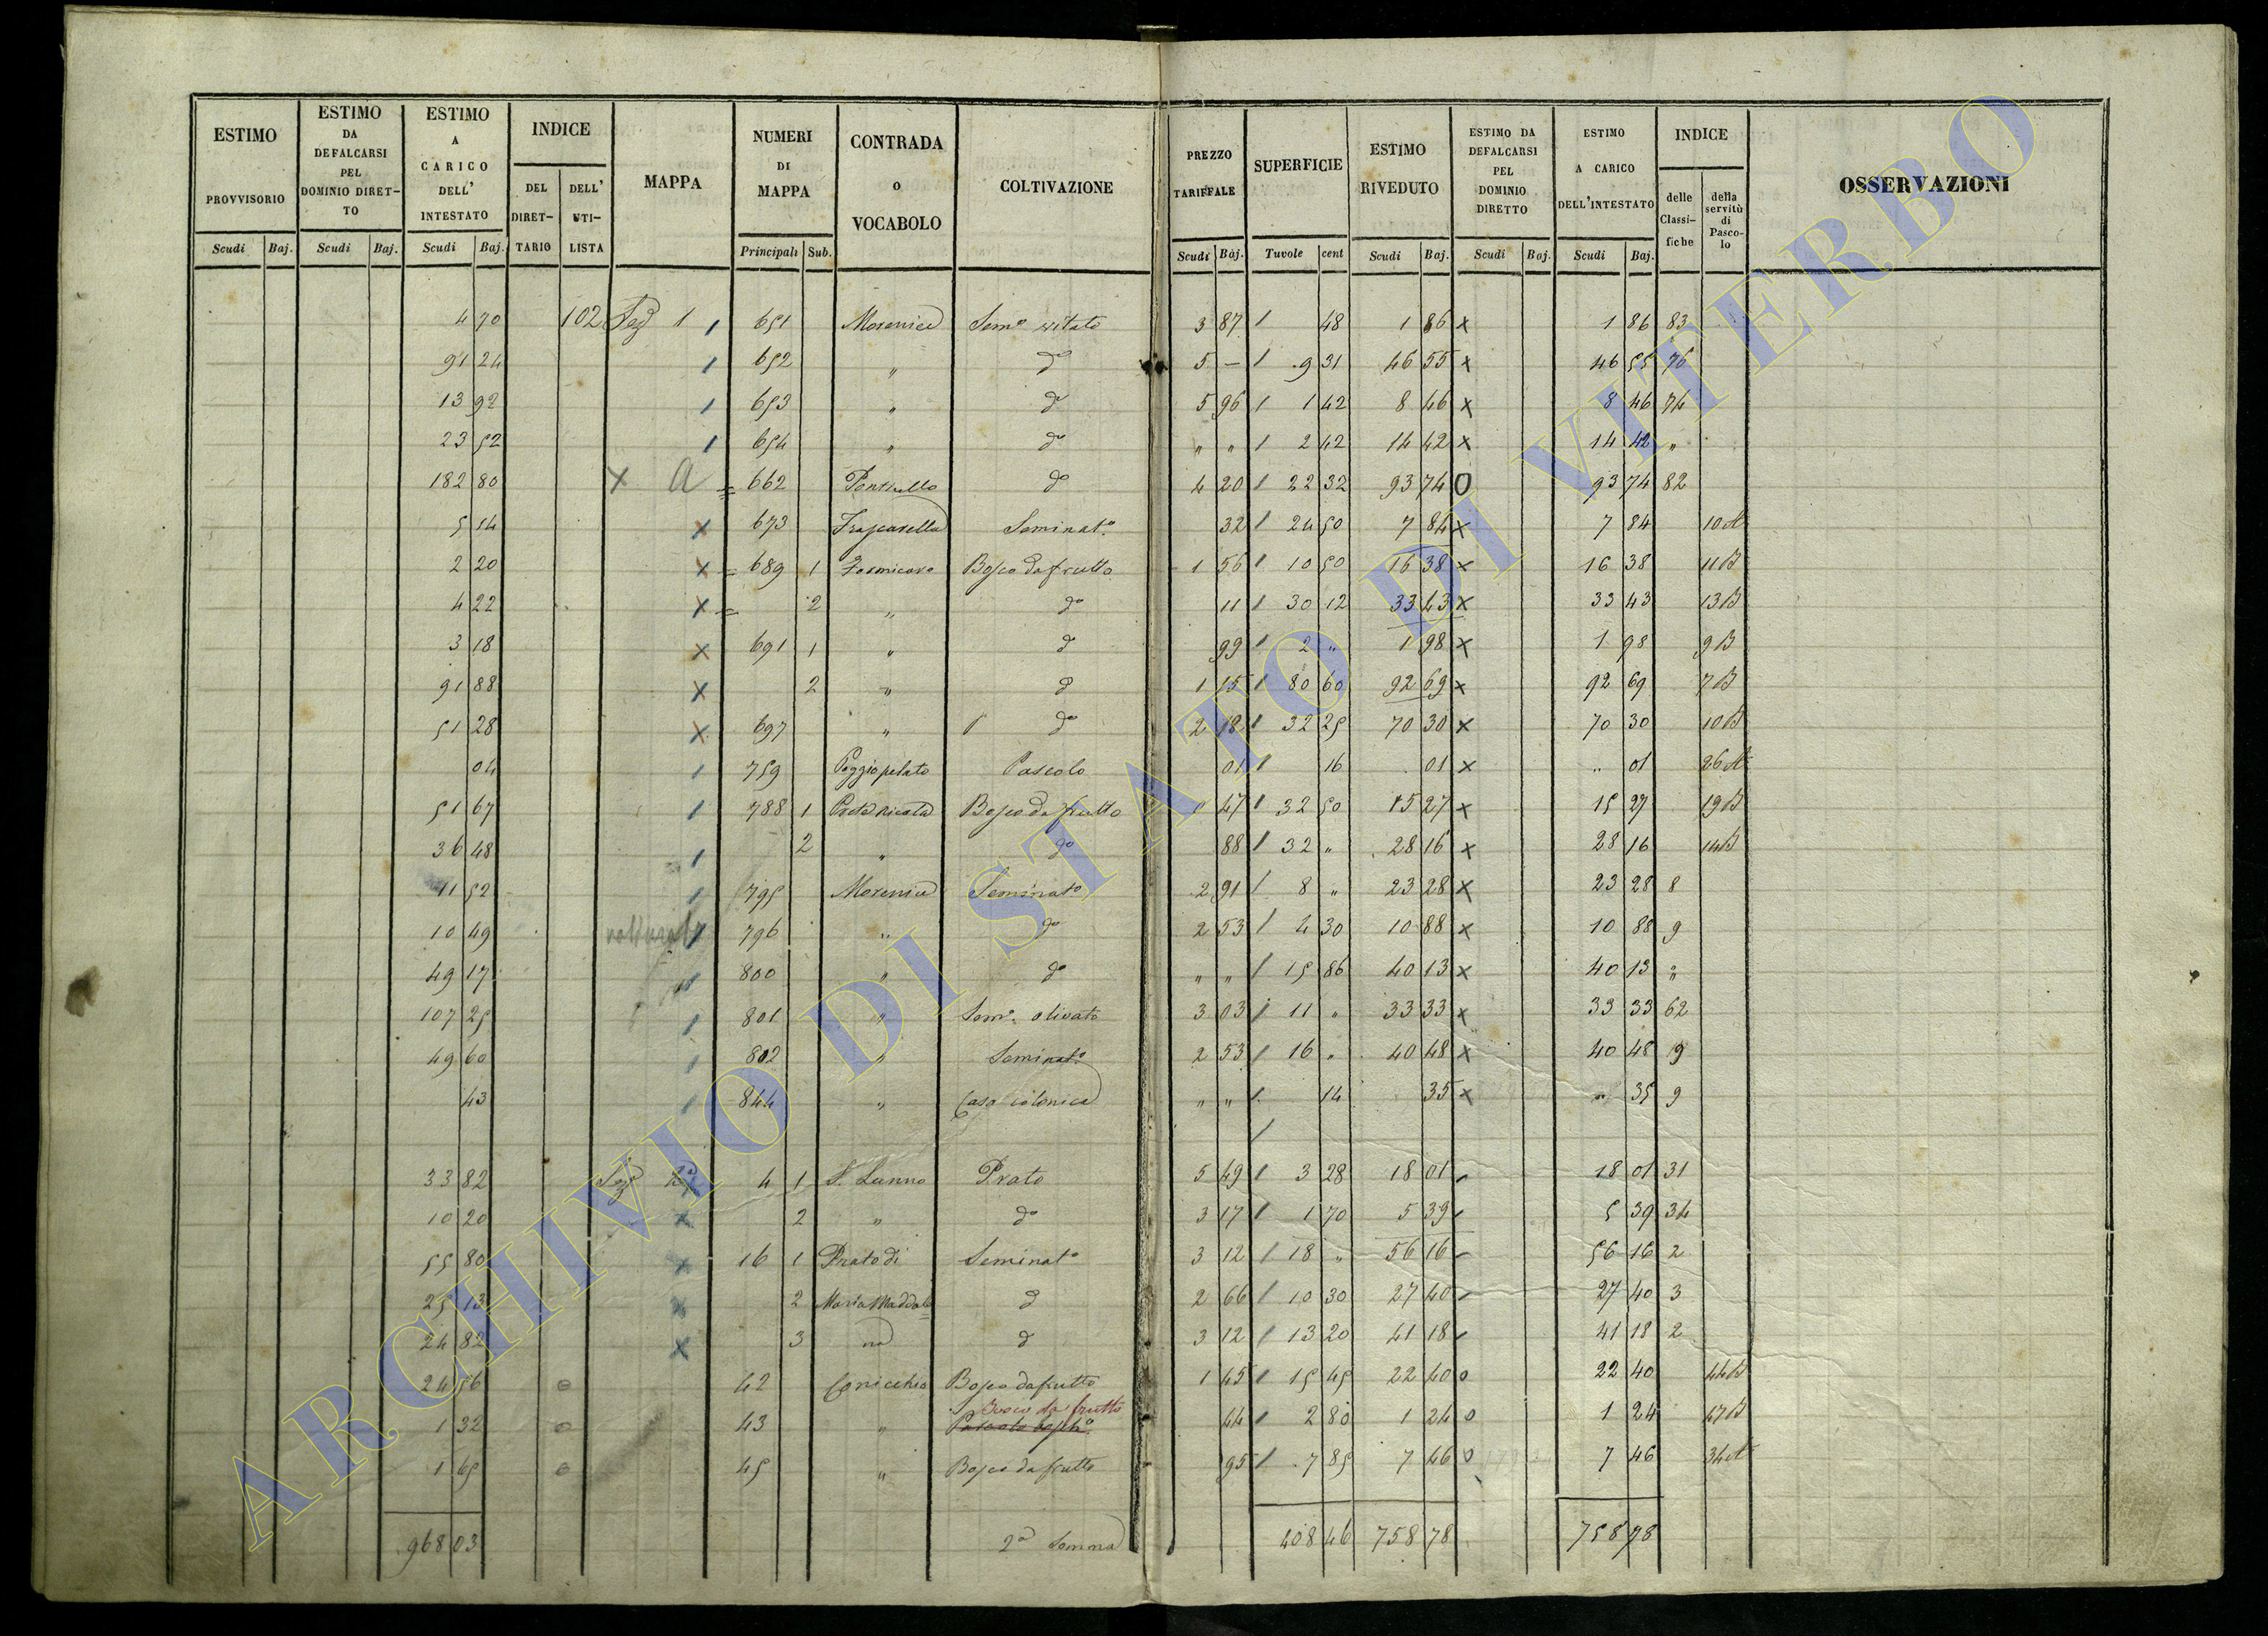 ESTIMO PROVVISORIO | ESTIMO DA DEFALCARSI PEL DOMINIO DIRET-TO | ESTIMO A CARICO DELL' INTESTATO | INDICE DEL DIRET-TARIO | DELL' UTI-LISTA | MAPPA | NUMERI DI MAPPA | CONTRADA O VOCABOLO | COLTIVAZIONE | PREZZO TARIFFALE | SUPERFICIE | ESTIMO RIVEDUTO | ESTIMO DA DEFALCARSI PEL DOMINIO DIRETTO | ESTIMO A CARICO DELL'INTESTATO | INDICE delle Classi-fiche | della servitù di Pasco-lo | OSSERVAZIONI
Scudi Baj. | Scudi Baj. | Scudi Baj. | Principali Sub. | Scudi Baj. | Tavole cent | Scudi Baj. | Scudi Baj. | Scudi Baj.
4 70 102 Sez 1 651 Morenica Semo vitato 3 87 48 1 86 x 1 86 83
91 24 652 " do 5 — 9 31 46 55 x 46 55 76
13 92 653 " do 5 96 1 42 8 46 x 8 46 74
23 52 654 " do " " 2 42 14 42 x 14 42 "
182 80 x a 662 do 4 20 22 32 93 74 O 93 74 82
5 14 x 673 Frascarella Seminato 32 24 50 7 84 x 7 84 10 A
2 20 x 689 1 Formicaro Bosco da frutto 1 56 10 50 16 38 x 16 38 11 B
4 22 x 2 " do 11 30 12 33 43 x 33 43 13 B
3 18 x 691 1 " do 99 2 " 1 98 x 1 98 9 B
91 88 x 2 " do 1 15 80 60 92 69 x 92 69 7 B
51 28 x 697 " do 2 18 32 25 70 30 x 70 30 10 B
04 759 Poggio pelato Pascolo 01 16 01 x " 01 26 A
51 67 788 1 Bosco da frutto 47 32 50 15 27 x 15 27 19 B
36 48 2 " do 88 32 " 28 16 x 28 16 14 B
11 52 795 Morenica Seminato 2 91 8 " 23 28 x 23 28 8
10 49 796 " do 2 53 4 30 10 88 x 10 88 9
49 17 800 " do " " 15 86 40 13 x 40 13 "
107 25 801 " Semo olivato 3 03 11 " 33 33 x 33 33 62
49 60 802 " Seminato 2 53 16 " 40 48 x 40 48 9
43 844 " Casa colonica " " 14 35 x " 35 9
33 82 Sez 4 1 S. Lunno Prato 5 49 3 28 18 01 18 01 31
10 20 x 2 " do 3 17 1 70 5 39 5 39 34
55 80 x 16 1 Prato di Seminato 3 12 18 " 56 16 56 16 2
25 13 x 2 Maria Maddale do 2 66 10 30 27 40 27 40 3
24 82 x 3 na do 3 12 13 20 41 18 41 18 2
24 56 42 Conicchio Bosco da frutto 1 45 15 45 22 40 o 22 40 44 B
Bosco da frutto
1 32 43 " Pascolo 44 2 80 1 24 o 1 24 47 B
1 65 45 " Bosco da frutto 95 7 85 7 46 o 7 46 34 A
968 03 2a Somma 408 46 758 78 758 78
ARCHIVIO DI STATO DI VITERBO